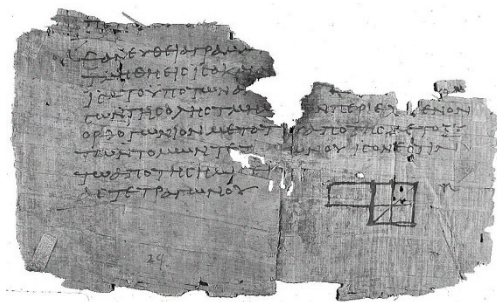 ΕΑΝΕΥΘΕΙΑΓΡΑΜΜ
ΤΜΗΘΗΕΙCΙCΑΚΑΙ
ΙCΑΤΟΥΠΟΤΩΝΑ
CΩΝΤΗCΟΛΗCΤΜΗΜ ΩΝΠΕΡΙΕΧΟΜΕΝΟΝ
ΟΡΘΟΓΩΝΙΟΝΜΕΤΑΤΟΥΑΠΟΤΗCΜΕΤΟΞΥ
ΤΩΝΤΟΜΩΝΤΕΤ ΩΝΟΥΙCΟΝΕCΤΙΝ
ΤΩΑΠΟΤΗCΗΜΙC
ΑCΤΕΤΡΑΓΩΝΟΥ
29